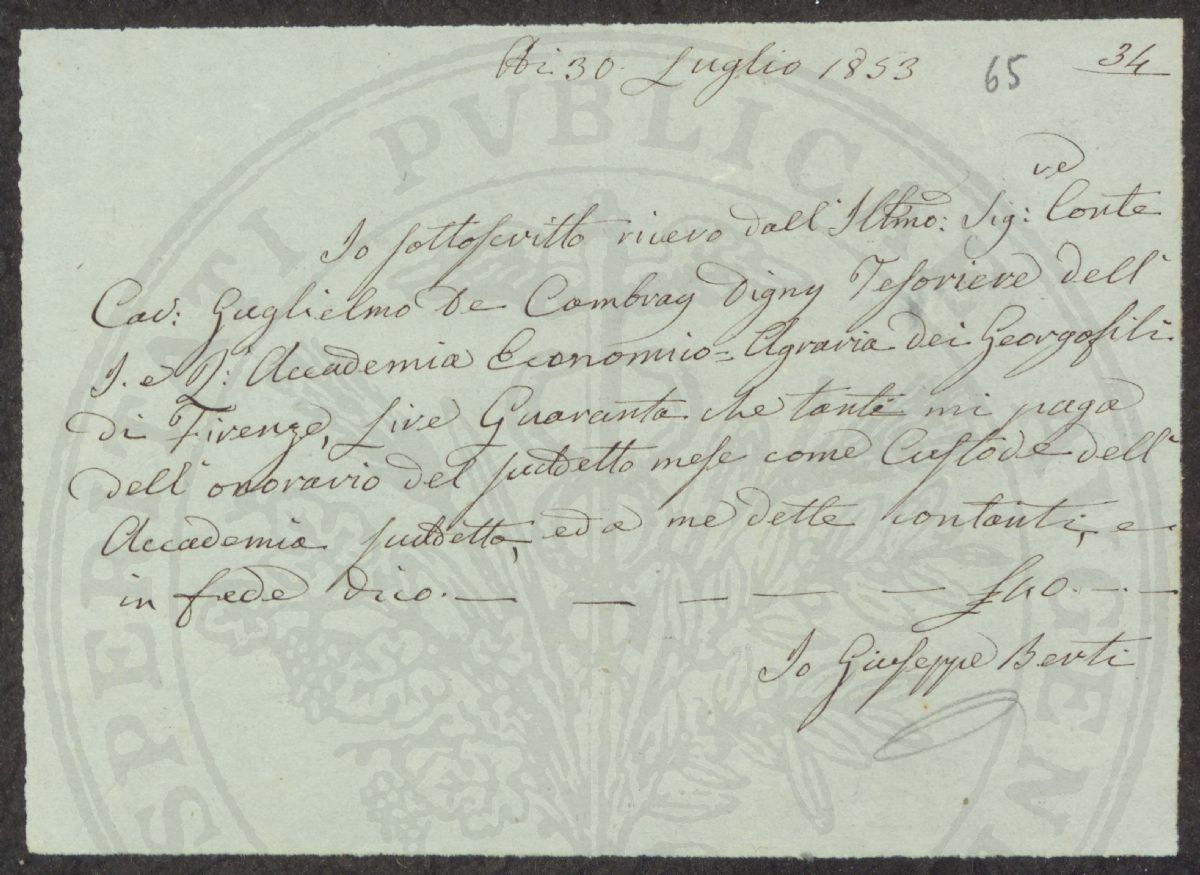 Adi 30. Luglio 1853 65 34
Io sottoscritto ricevo dall' Illmo: Sig:re Conte
Cav: Guglielmo De Cambray Digny Tesoriere dell'
I. e R: Accademia Economico=Agraria dei Georgofili
di Firenze, Lire Quaranta che tante mi paga
dell' onorario del suddetto mese come Custode dell'
Accademia suddetta, ed a me dette contanti, e
in fede dico. — — — — — £40. — —
Io Giuseppe Berti
SPERITATI PVBLICAE